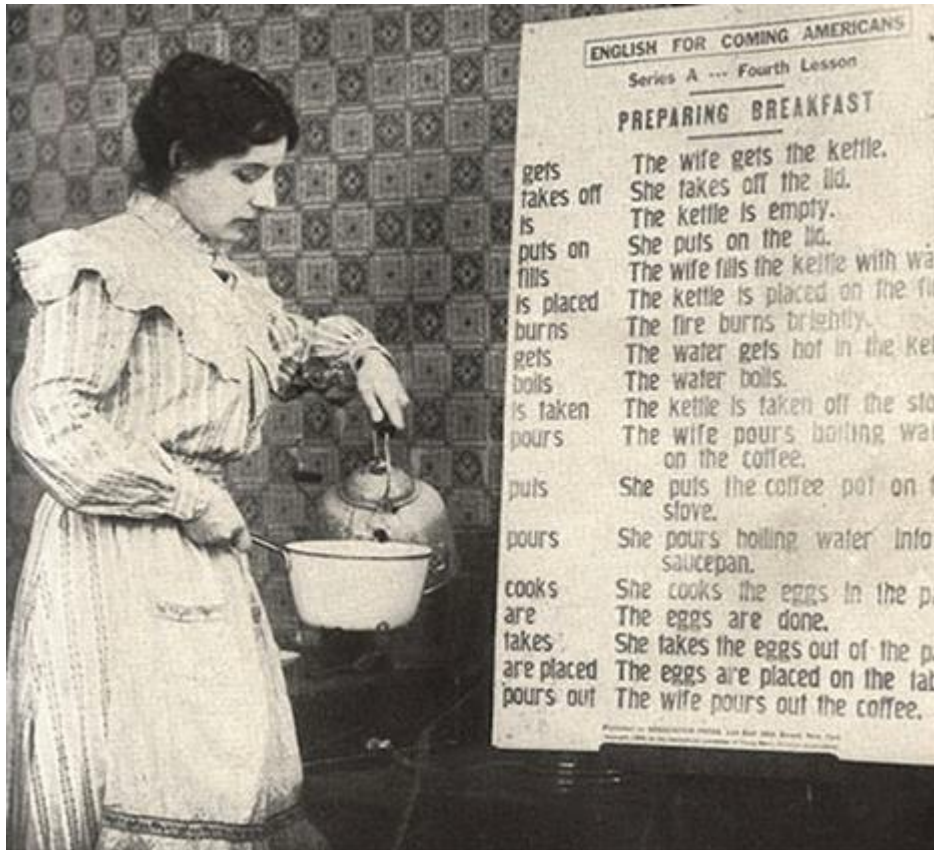 ENGLISH FOR COMING AMERICANS
Series A --- Fourth Lesson
PREPARING BREAKFAST
gets The wife gets the kettle.
takes off She takes off the lid.
is The kettle is empty.
puts on She puts on the lid.
fills The wife fills the kettle with wa
is placed The kettle is placed on the fi
burns The fire burns brightly.
gets The water gets hot in the ket
boils The water boils.
is taken The kettle is taken off the sto
pours The wife pours boiling wa
on the coffee.
puts She puts the coffee pot on t
stove.
pours She pours boiling water into
saucepan.
cooks She cooks the eggs in the p
are The eggs are done.
takes She takes the eggs out of the p
are placed The eggs are placed on the tab
pours out The wife pours out the coffee.